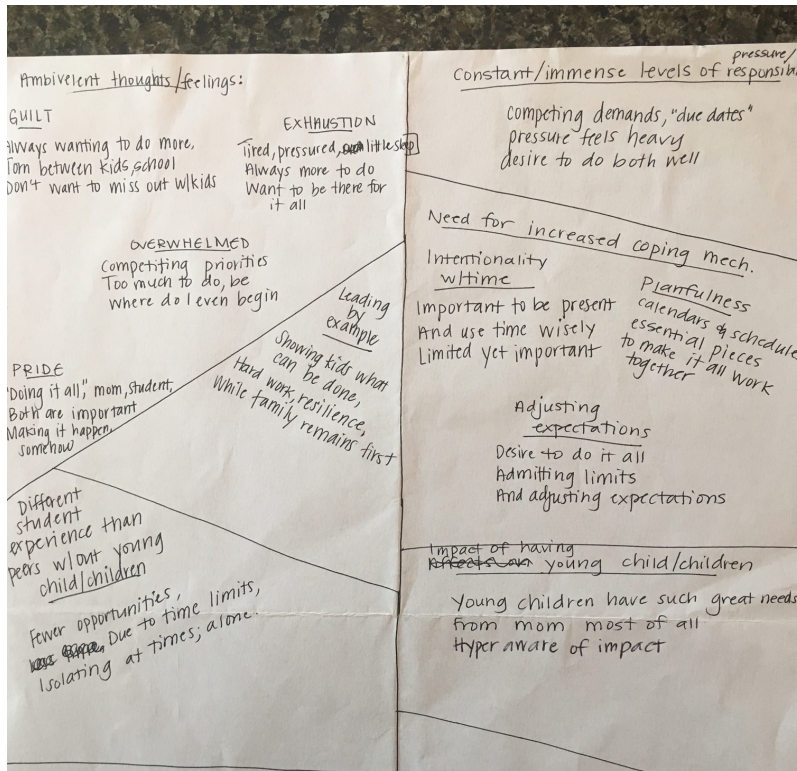 Ambivelent thoughts/feelings:
GUILT
Always wanting to do more,
Torn between kids, school
Don't want to miss out w/kids
EXHAUSTION
Tired, pressured, little sleep
Always more to do
Want to be there for
it all
OVERWHELMED
Competiting priorities
Too much to do, be
Where do I even begin
PRIDE
"Doing it all," mom, student,
Both are important
Making it happen,
somehow
Leading
by
example
Showing kids what
can be done,
Hard work, resilience,
While family remains first
Different
student
experience than
peers w/out young
child/children
Fewer opportunities,
Due to time limits,
Isolating at times; alone.
pressure/
Constant/immense levels of
competing demands, "due dates"
pressure feels heavy
desire to do both well
Need for increased coping mech.
Intentionality
w/time
Important to be present
And use time wisely
Limited yet important
Planfulness
calendars & schedule
essential pieces
to make it all work
together
Adjusting
expectations
Desire to do it all
Admitting limits
And adjusting expectations
Impact of having
young child/children
Young children have such great needs
From mom most of all
Hyper aware of impact